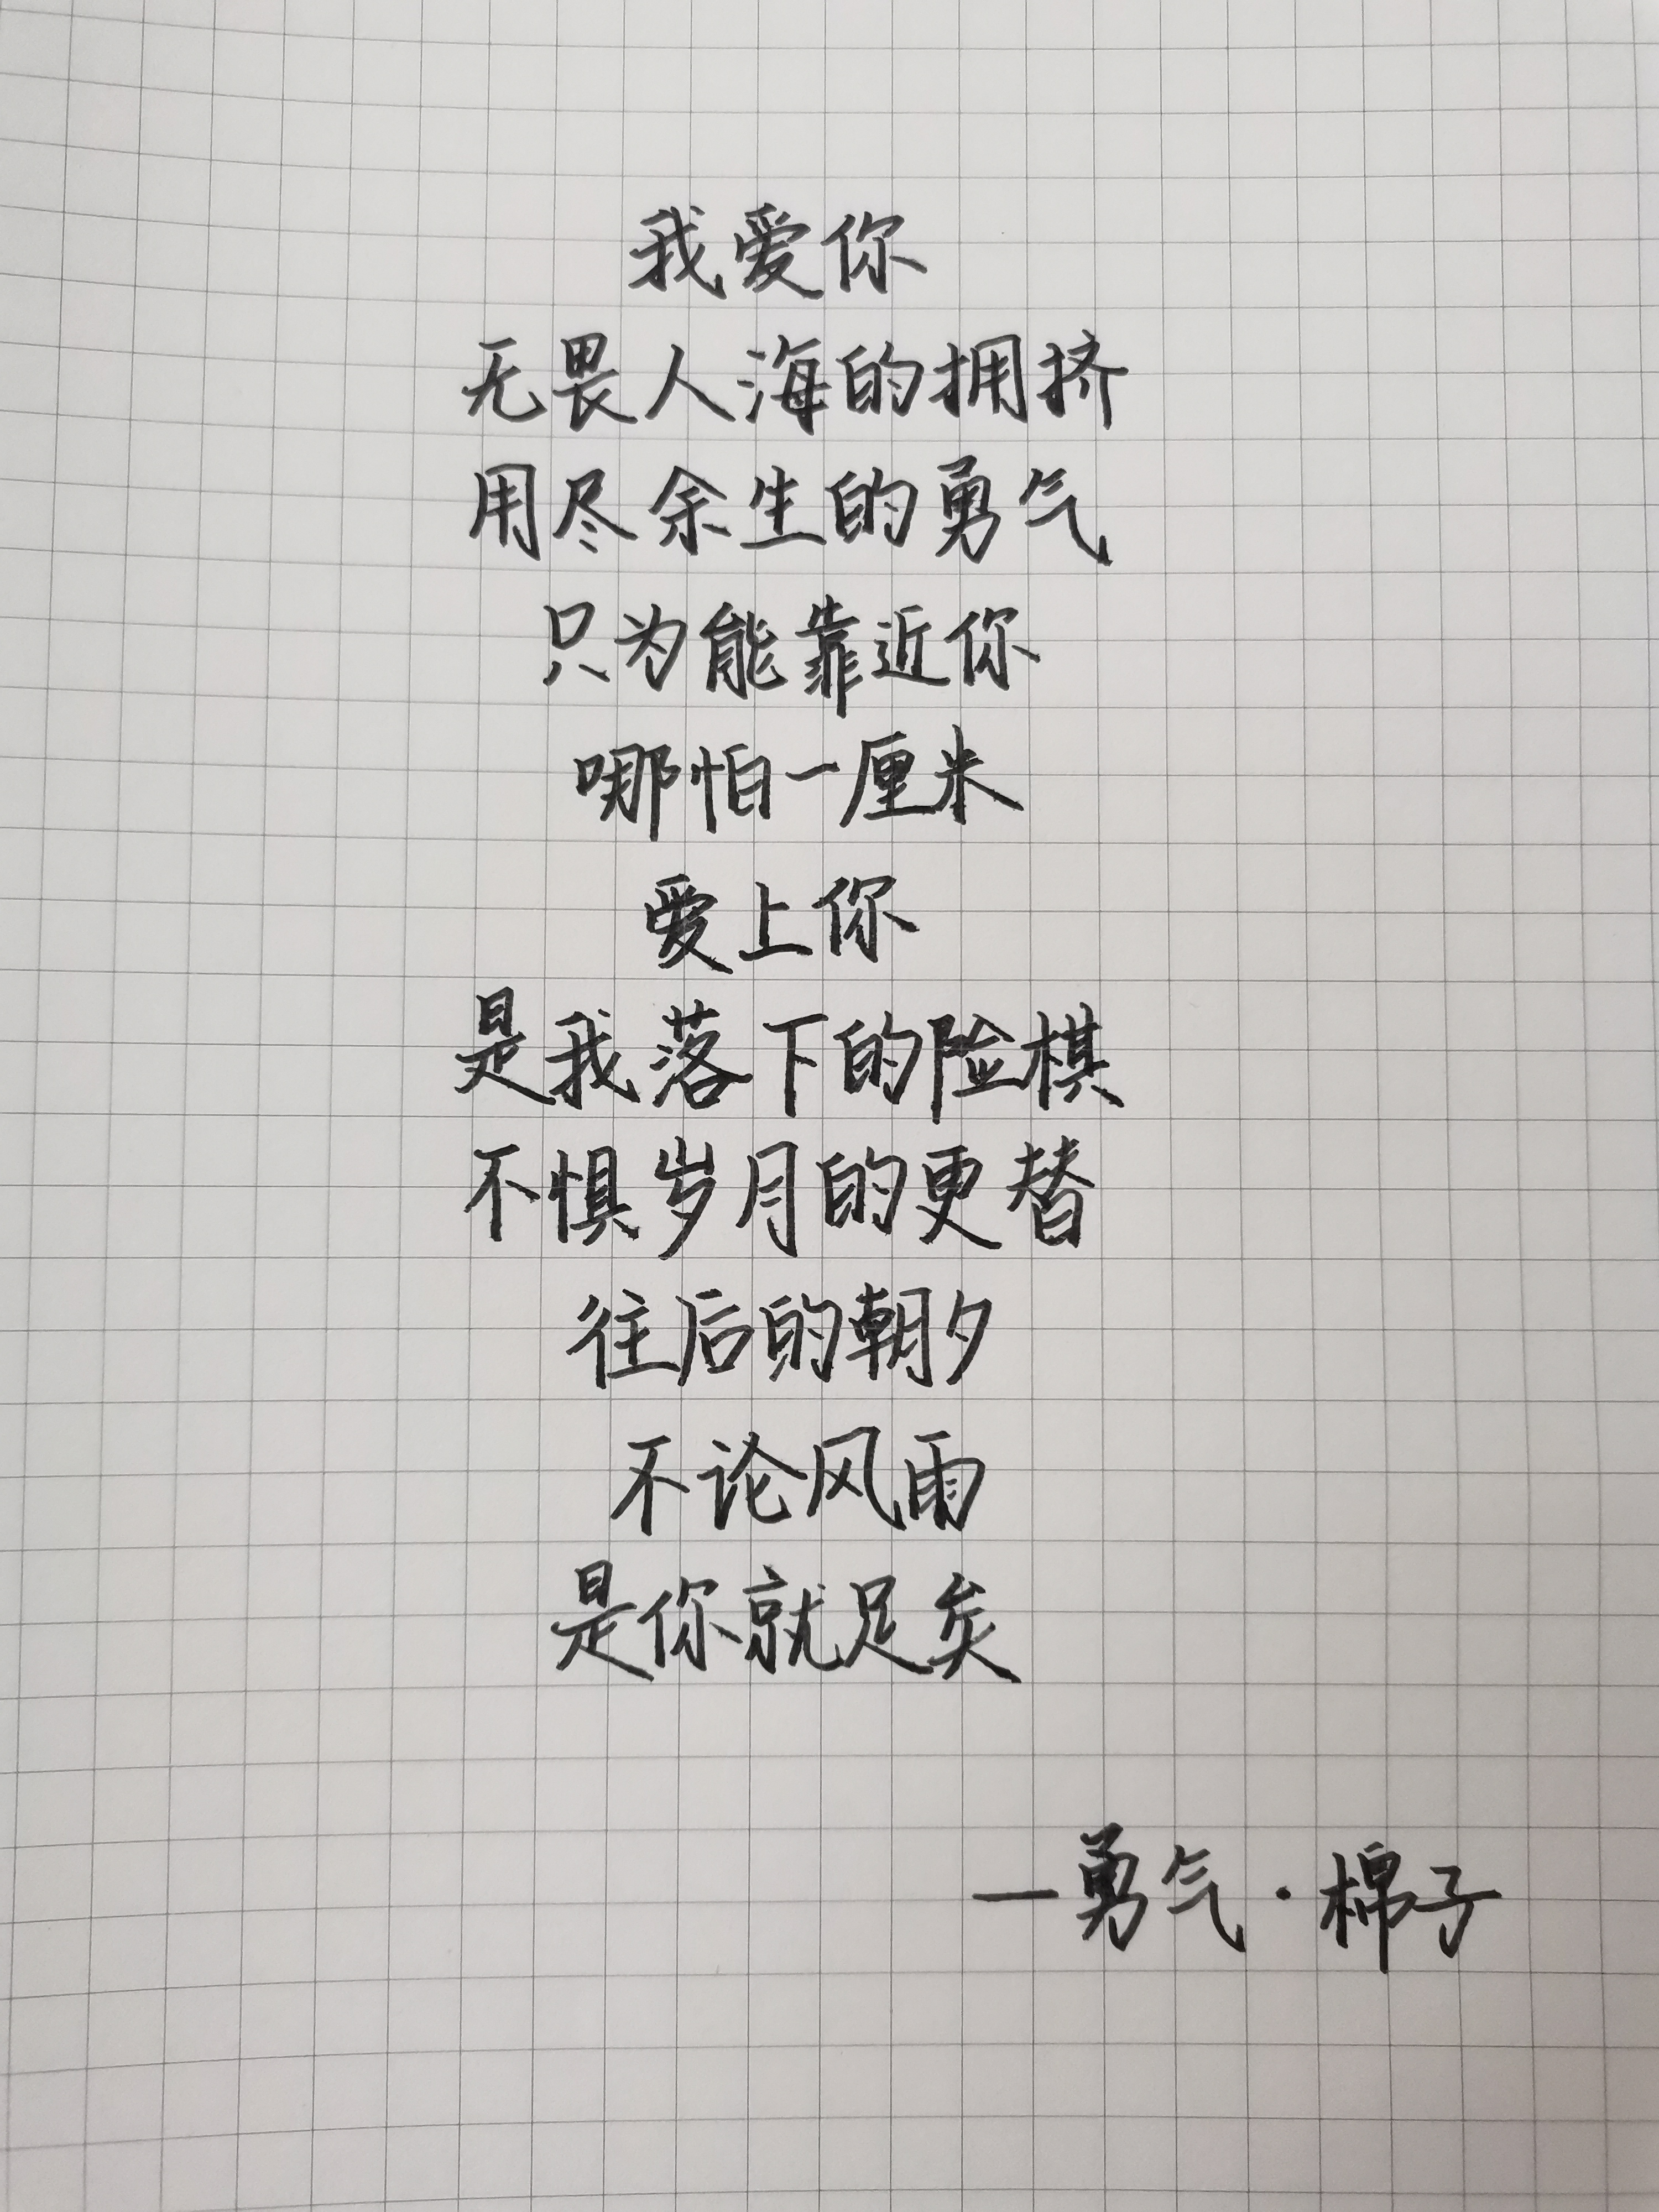 我爱你
无畏人海的拥挤
用尽余生的勇气
只为能靠近你
哪怕一厘米
爱上你
是我落下的险棋
不惧岁月的更替
往后的朝夕
不论风雨
是你就足矣
—勇气·棉子